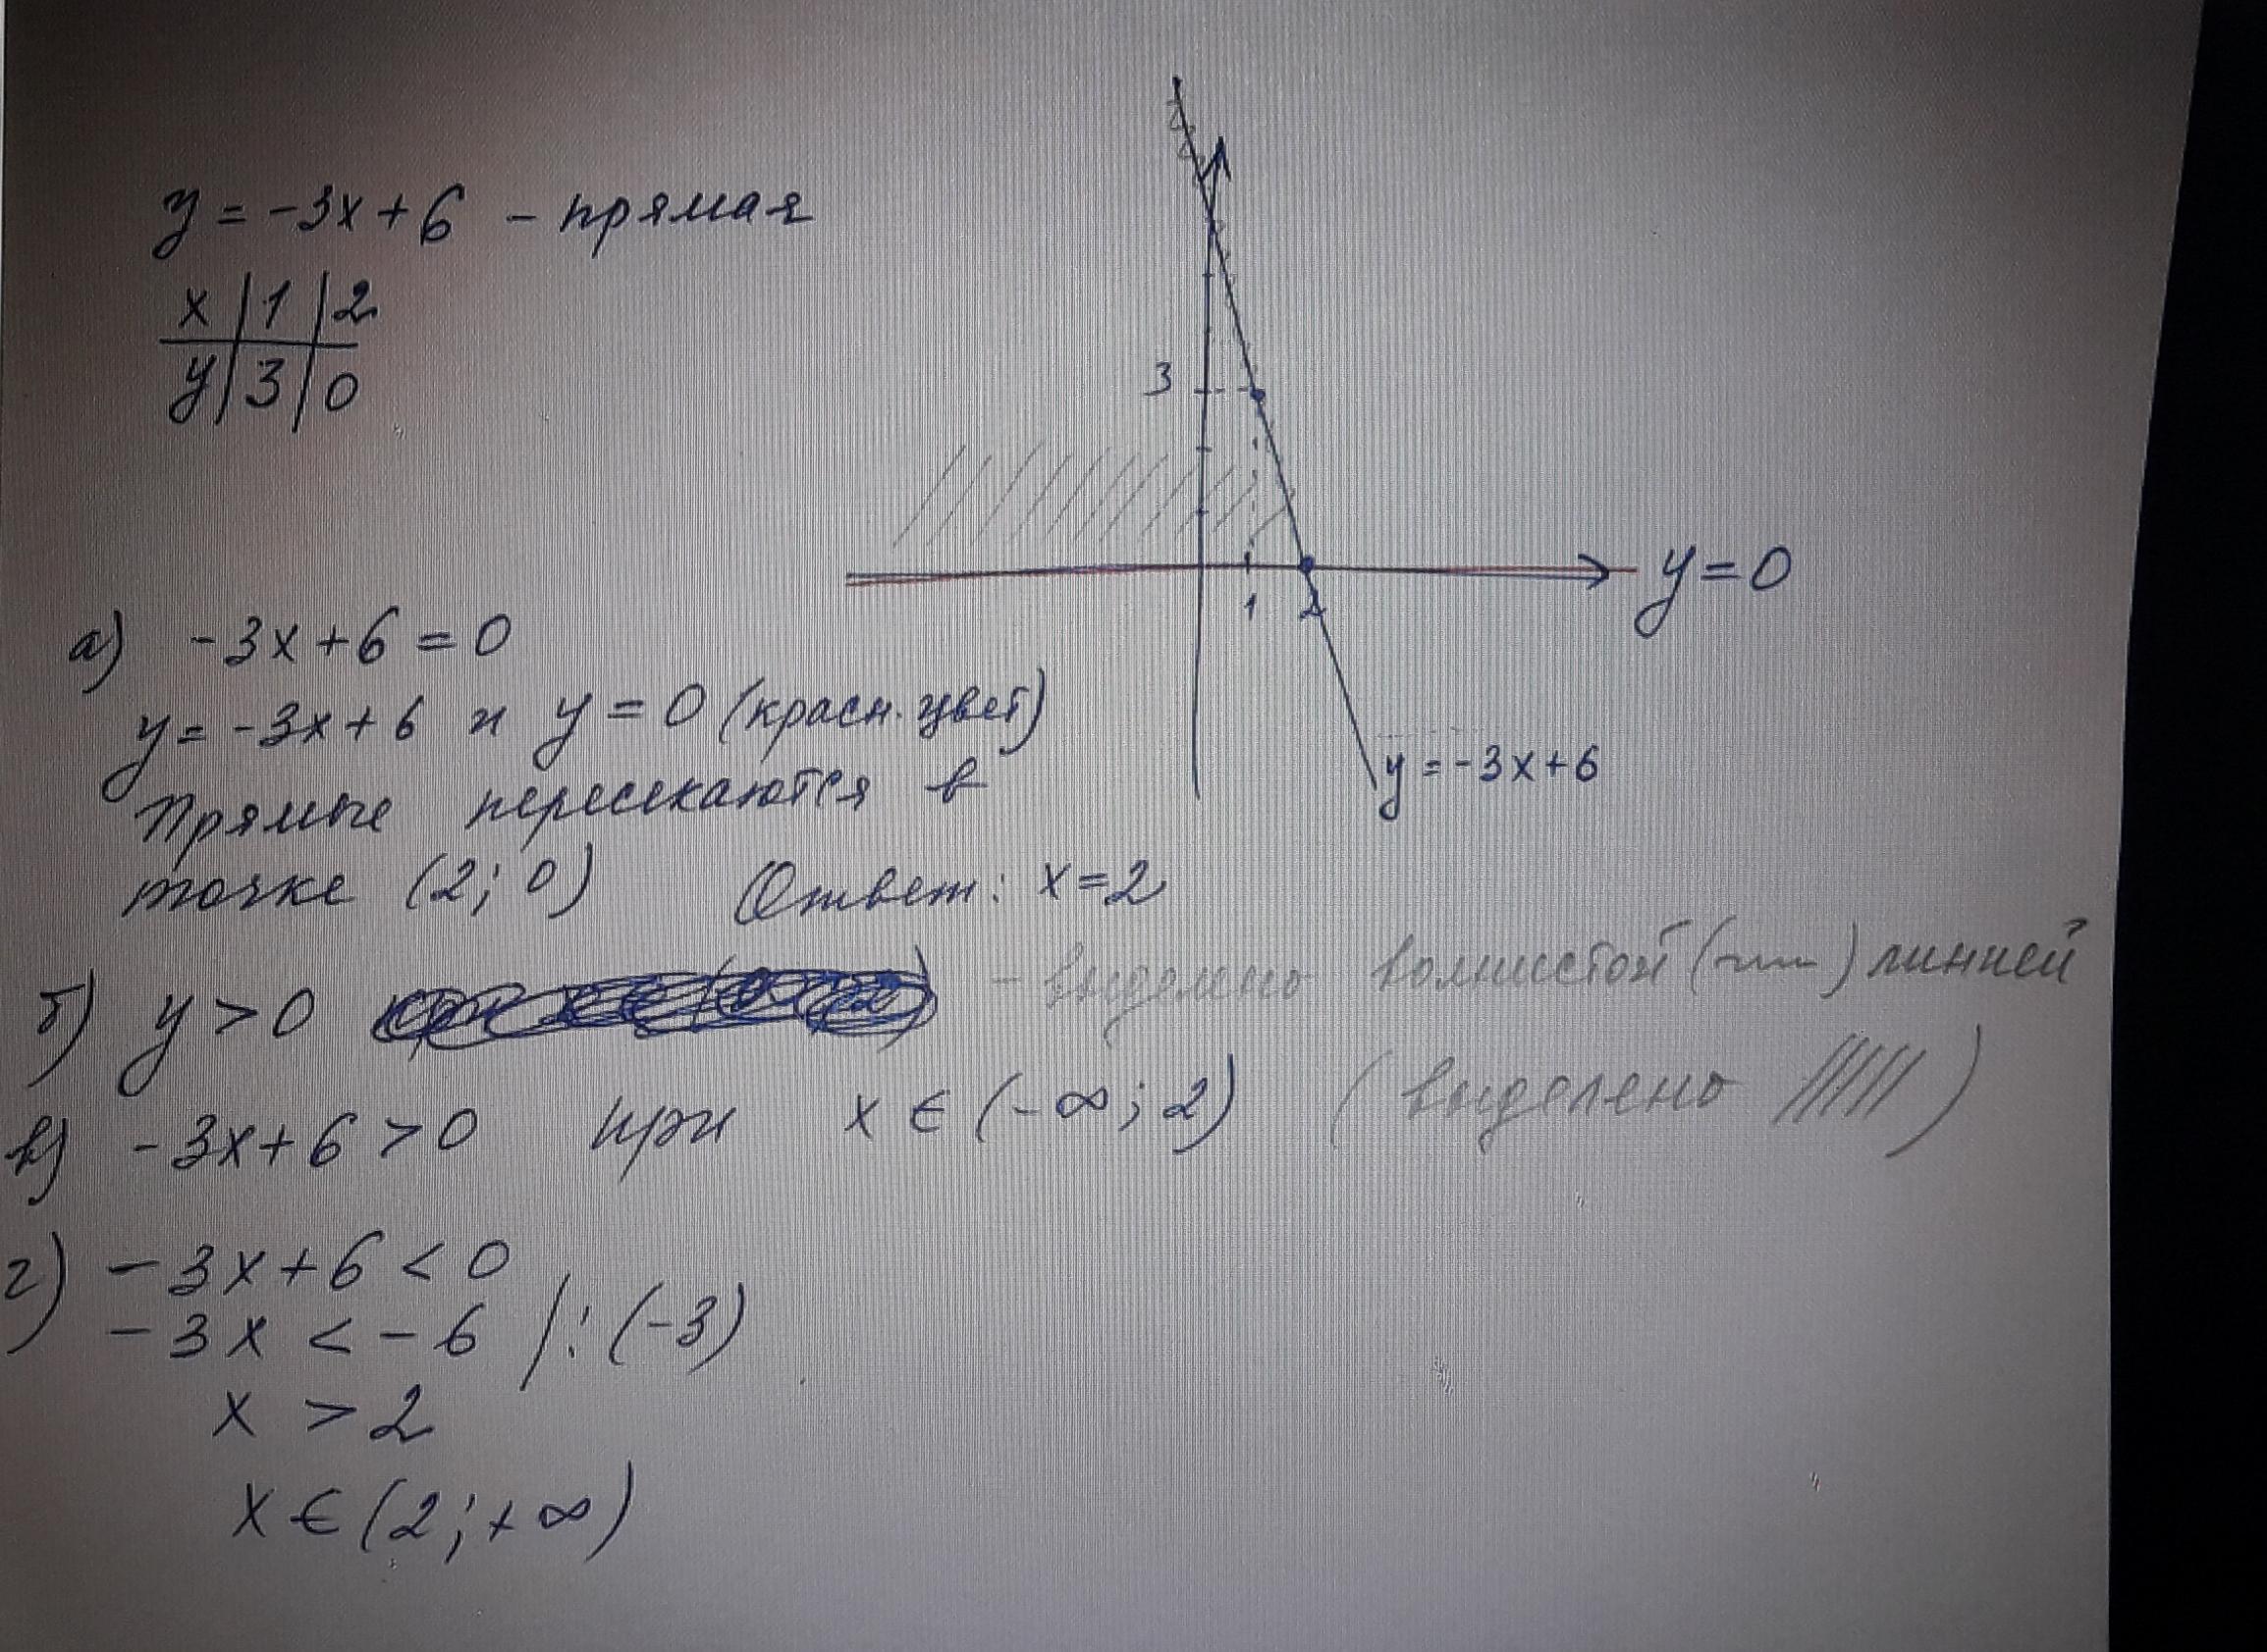 y = -3x + 6 - прямая
x | 1 | 2
y | 3 | 0
3
1 2
y = 0
y = -3x + 6
а) -3x + 6 = 0
y = -3x + 6 и y = 0 (красн. цвет)
Прямые пересекаются в
точке (2; 0) Ответ: x = 2
б) y > 0 - выделено волнистой (~~) линией
в) -3x + 6 > 0 при x ∈ (-∞; 2) (выделено /////)
г) -3x + 6 < 0
-3x < -6 /: (-3)
x > 2
x ∈ (2; +∞)